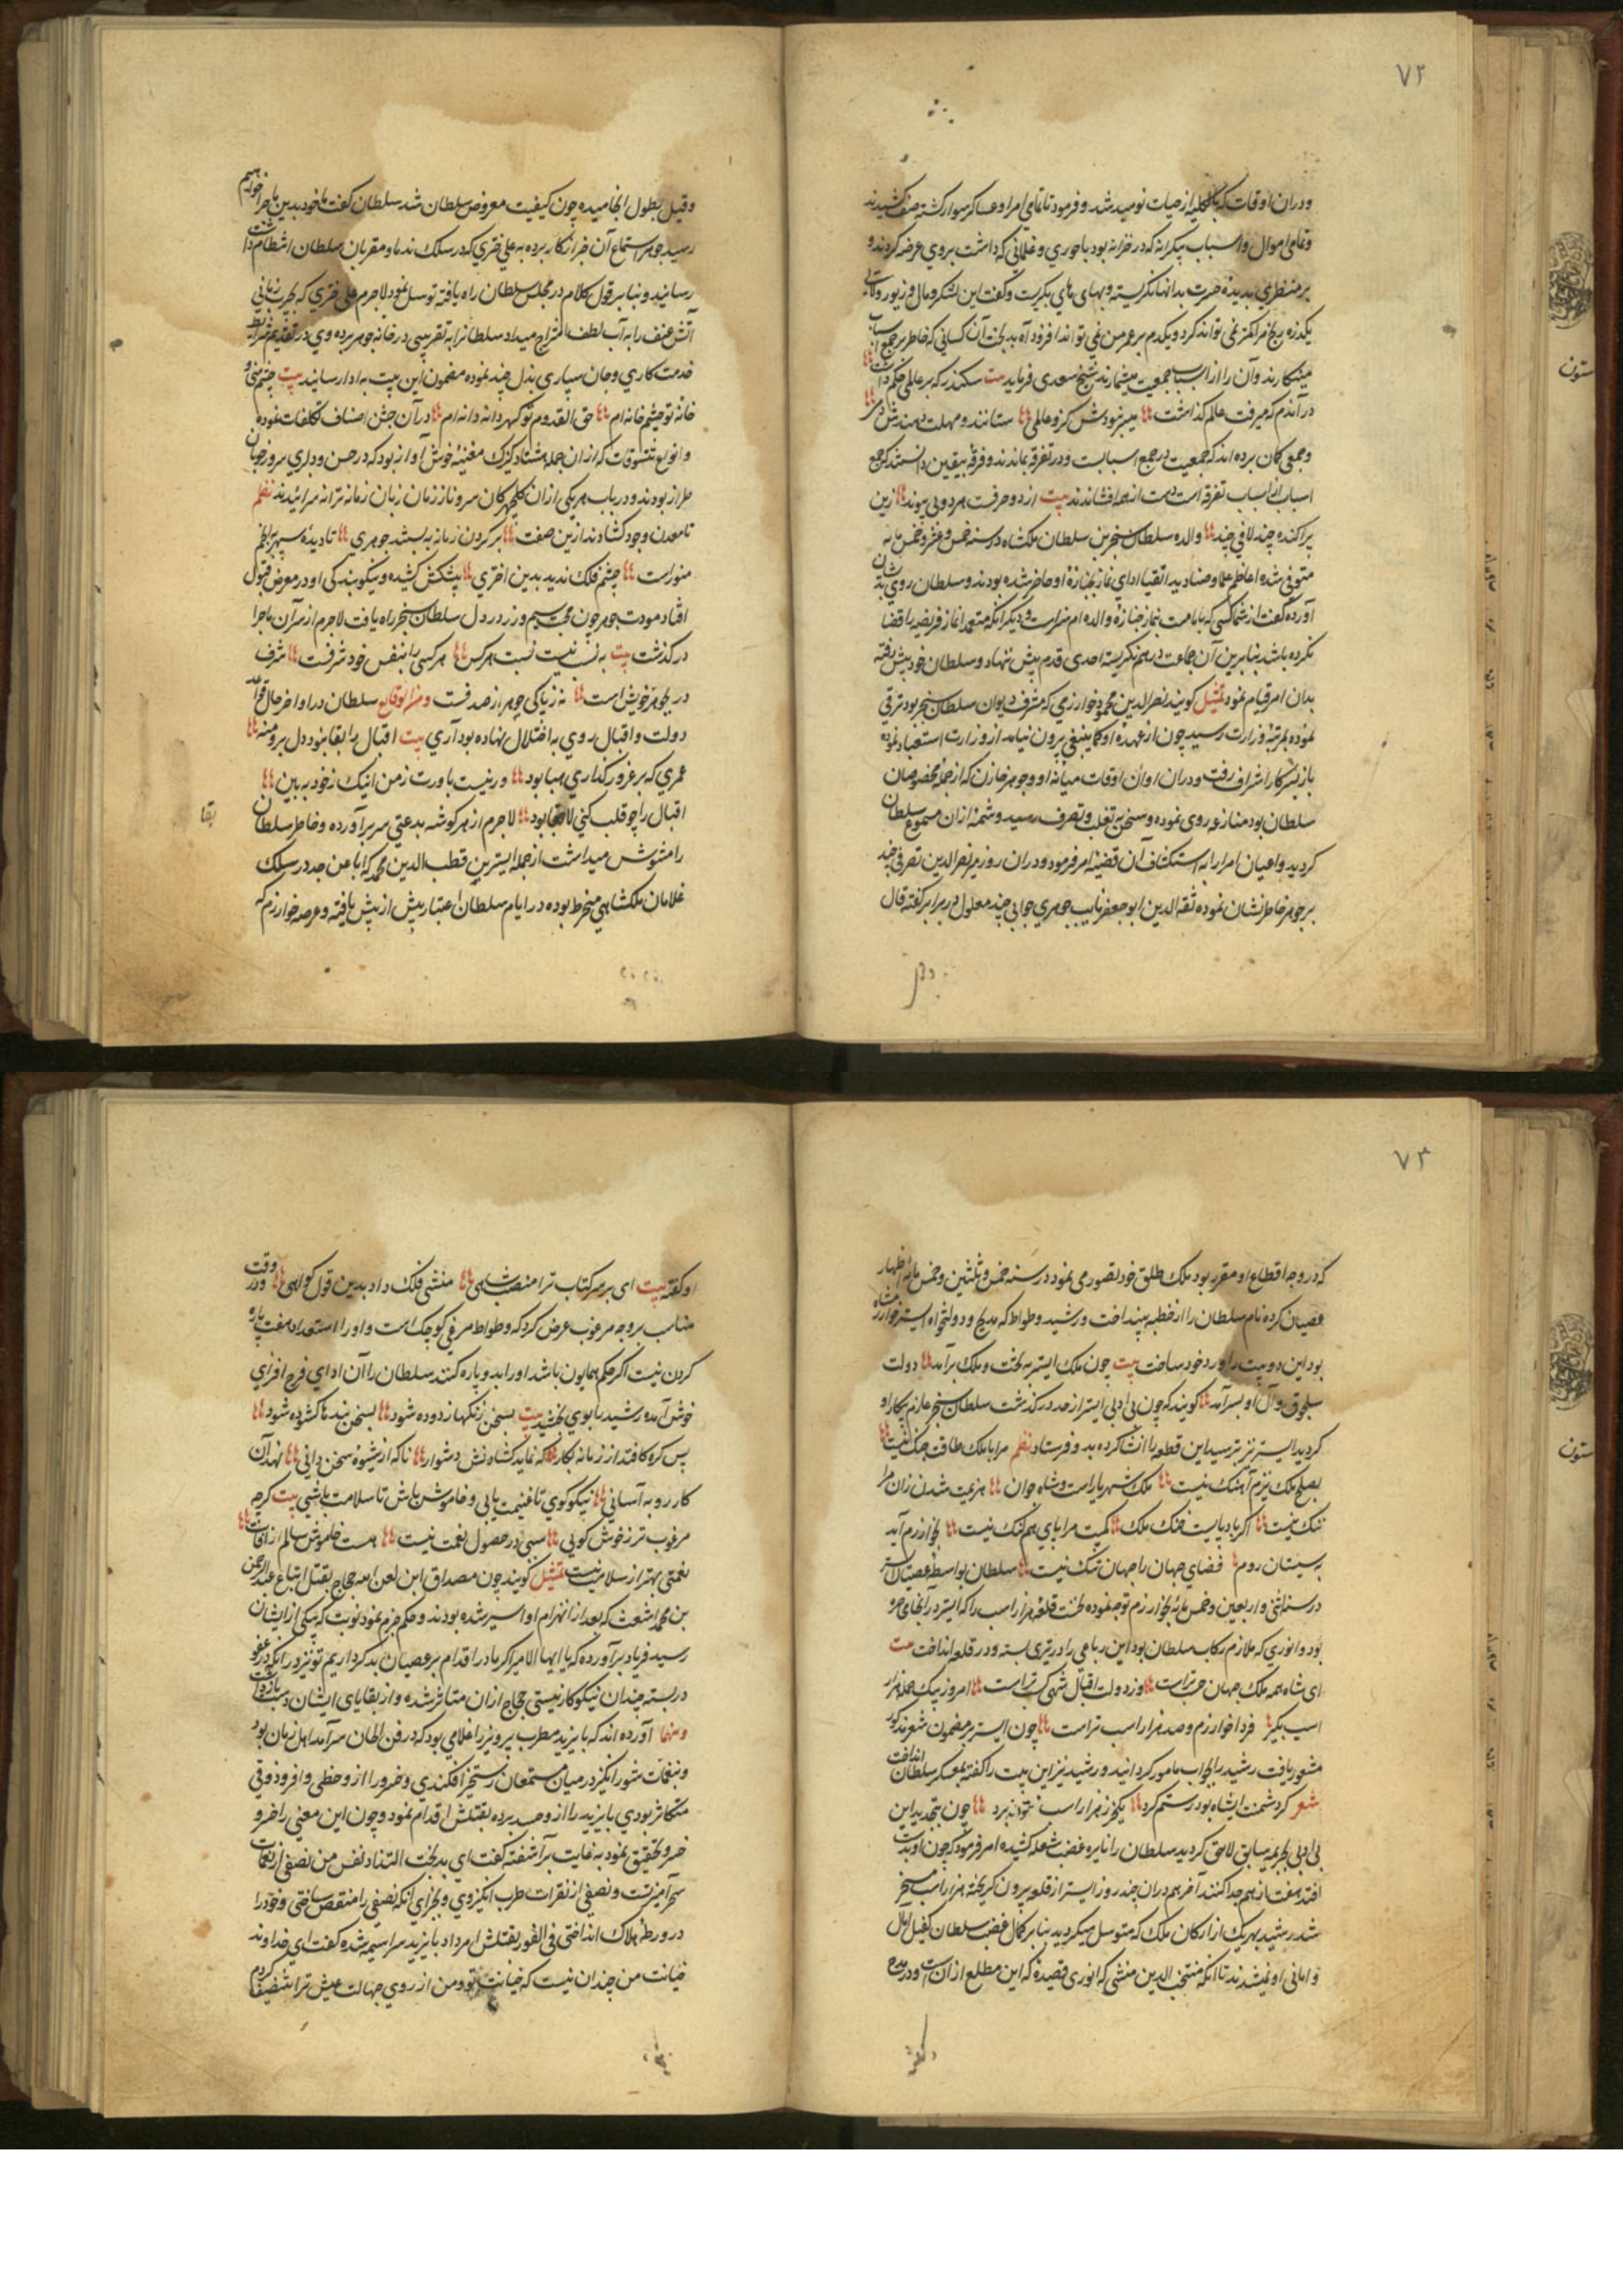 ۷۲
ودران اوقات که بالکلیه از حیات نومید شد و فرمود تا تمامی امرا و عساکر سوار گشته صف کشیدند
وتمامی اموال واسباب بیکرانه که در خزانه بود با جوری و غلمانی که داشت بروی عرضه کردند و
بر منظری بدیدهٔ حسرت بدانها نگریسته و بهای های بگریست و گفت این لشکر و مال و زیور ولایت
یکذره رنج مرا کمتر نمی تواند کرد و یکدم بر عمر من نمی تواند افزود آه بدبخت آن کسانی که خاطر بر جمع اسباب
میگمارند و آن را از اسباب جمعیت میشمارند شیخ سعدی فرماید بیت سکندر که بر عالمی حکم داشت
در آندم که میرفت عالم گذاشت میسر نبودش کزو عالمی ستانند و مهلت دهندش دمی
وجمعی گمان برده اند که جمعیت در جمع اسبابست و در تفرقه بماندند و فرقهٔ بیقین دانستند که جمع
اسباب از اسباب تفرقه است دست از همه افشاندند بیت از دو حرفت هر دویی پیوند زین
پراکنده چند لافی چند والده سلطان سنجر بن سلطان ملکشاه در سنه خمس و عشر و خمس مایه
متوفی شده اعاظم علما و صنادید اتقیا ادای نماز بجنازهٔ او حاضر شده بودند و سلطان روی بدیشان
آورده گفت از شما کسی که بامامت نماز جنازهٔ والده ام سزاست و دیگر آنکه متعمدا نماز فریضه را قضا
نکرده باشد بنابرین آن جماعت درهم نگریسته احدی قدم پیش ننهاد و سلطان خود پیش رفته
بدان امر قیام نمود تمثیل گویند نصرالدین محمود خوارزمی که مشرف دیوان سلطان سنجر بود ترقی
نموده بمرتبهٔ وزارت رسید چون از عهده او کما ینبغی برون نیامد از وزارت استعباد نموده
باز بشر کار اشراف رفت ودران اوان اوقات میانهٔ او و جوهر خازن که از جمله مخصوصان
سلطان بود منازعه روی نموده و سخن به تغلب و تصرف رسید و شمهٔ ازان مسموع سلطان
گردید و اعیان امرا را به استکشاف آن قضیهٔ امر فرمود ودران روز میر نصرالدین تصرفی چند
بر جوهر خاطر نشان نموده ثقه الدین ابو جعفر نایب جوهری جوابی چند معلول در برابر گفته قال
وقیل بطول انجامیده چون کیفیت معروض سلطان شد سلطان گفت ما خود بدین ماجرا خواهیم
رسید جوهر استماع آن خبر از کار برده به علی فتری که در سلک ندما و مقربان سلطان انتظام داشت
رسانید و بنابر قول کلام در مجلس سلطان راه یافته توسل نمود لاجرم علی فتری که بچرب زبانی
آتش عنف را به آب لطف امتزاج میداد سلطانرا به تقریبی در خانه جوهر برده وی در تقدیم شرایط
خدمتکاری و جان سپاری بذل جهد نموده مضمون این بیت به ادا رسانید بیت چشم منی و
خانهٔ تو چشم خانه ام حق القدوم تو گهر دانه دانه ام در آن جشن اصناف تکلفات نموده
وانواع تنسوقات که ازان جمله هشتاد کنیزک مغنیهٔ خوش آواز بود که در حسن ودلبری سرور خوبان
طراز بودند و در باب هر یکی از ان گلچهرگان سروناز زمان زبان زمانه ترانه سرائیدند نظم
تا معدن وجود گشادند ازین صفت بر گردون زمانه نه بستند جوهری تا دیدهٔ سپهر بانجم
منور است چشم فلک ندید بدین اختری پیشکش کشیده و نیکو بندگی او در معرض قبول
افتاد مودت جوهر چون محبت سیم و زر در دل سلطان سنجر راه یافت لاجرم از سر آن ماجرا
در گذشت بیت به نسب نیست نسبت هر کس هر کسی را بنفس خود شرفست شرف
در بجوهر خویش است نه ز پاکی جوهر از صدفست ومن الوقایع سلطان در اواخر حال قواعد
دولت و اقبال روی به اختلال نهاده بود آری بیت اقبال را بقا نبود دل برو منه
عمری که بر غرور گذاری هبا بود ور نیست باورت ز من اینک ز خود به بین
اقبال را چو قلب کنی لابقا بود لاجرم از هر گوشه بدعتی سر برآورده و خاطر سلطان
بقا
را مشوش میداشت از جمله ایستر بن قطب الدین محمد که ابا عن جد در سلک
غلامان ملکشاهی منخرط بوده در ایام سلطان اعتبار بیش از پیش یافته و عرصه خوارزم که
۷۳
که در وجه اقطاع او مقرر بود ملک طلق خود تصور می نمود در سنه خمس و ثلثین و خمس مایه اظهار
عصیان کرده نام سلطان را از خطبه بینداخت و رشید وطواط که مدیح و دولتخواه ایستر خوارزمشاه
بود این دو بیت را ورد خود ساخت بیت چون ملک ایستر به تخت و ملک برآمد دولت
سلجوق و آل او بسر آمد گویند که چون بی ادبی ایستر از حد در گذشت سلطان سنجر عازم پیکار او
گردید ایستر نیز بترسید این قطعه را انشا کرده بدو فرستاد نظم مرا با ملک طاقت جنگ نیست
بصلح ملک نیزم آهنگ نیست ملک شهریارست و شاه جوان هزیمت شدن زان مرا
ننگ نیست اگر باد پایست خنک ملک کمیت مرا پای هم لنگ نیست بخوارزم آید
بسیستان روم فضای جهان را جهان تنگ نیست سلطان بواسطهٔ عصیان ایستر
در سنه اثنی و اربعین و خمس مائه بخوارزم توجه نموده نخست قلعهٔ هزار اسب را که ایستر در آنجا می
بود و انوری که ملازم رکاب سلطان بود این رباعی را در تیری بسته و در قلعه انداخت بیت
ای شاه همه ملک جهان حسب تراست وز دولت و اقبال شهی کسب تراست امروز بیک حمله هزار
اسب بگیر فردا خوارزم و صد هزار اسب تراست چون ایستر بر مضمون شعر مذکور
مشعور یافت رشید را بجواب مامور گردانید و رشید نیز این بیت را گفته بمعسکر سلطان انداخت
شعر گر دشمنت ایشاه بود رستم گرد یک خر ز هزار اسب نتواند برد چون بتجدید این
بی ادبی بجریمه سابق لاحق گردید سلطان را نایره غضب شعله کشیده امر فرمود که چون او بدست
افتد هفت از هم جدا کنند آخر هم دران چند روز ایستر از قلعه بیرون گریخته هزار اسب مسخر
شد رشید بهر یک از ارکان ملک که متوسل میگردید بنابر کمال غضب سلطان کفیل آمال
و امانی او نمیشدند تا آنکه منتخب الدین منشی که انوری قصیدهٔ که این مطلع ازان است در مدح
او گفته بیت ای بر سر کتاب ترا منصب شاهی منشی فلک داد بدین قول گواهی در وقت
مناسب بر وجه مرغوب عرض کرد که وطواط مرغی کوچک است و او را استعداد هفت پاره
کردن نیست اگر حکم همایون باشد او را بدو پاره کنند سلطان را آن ادای فرح افزای
خوش آمده رشید را بوی بخشید بیت بسخن زنگها زدوده شود بسخن بندها گشوده شود
بس گره کافتد از زمانه بکار که نماید گشادنش دشوار ناگه از شیوهٔ سخن دانی نهد آن
کار رو به آسانی نیکو گوی تا غنیمت یابی و خاموش باش تا سلامت باشی بیت گرچه
مرغوب تر ز خوش گویی سببی در حصول نعمت نیست هست خاموش سالم از آفات
نعمتی بهتر از سلامت نیست تمثیل گویند چون مصداق ابن لعن الله حجاج بقتل اتباع عبدالرحمن
بن محمد اشعث که بعد از انهزام او اسیر شده بودند و حکم جزم نمود نوبت که بیکی از ایشان
رسید فریاد برآورده که یا ایها الامیر اگر ما در اقدام بر عصیان بدکرداریم تو نیز در آنکه در عفو
در بسته چندان نیکو کار نیستی حجاج ازان متاثر شده و از بقایای ایشان دست بازداشت
ومنها آورده اند که بایزید مطرب پرویز را غلامی بود که در فن الحان سرآمد اهل زمان بود
وبنغمات شور انگیز در میان مستمعان رستخیز افکندی و خسرو را ازو حظی وافر و ذوقی
متکاثر بودی بایزید را از و حسد برده بقتلش اقدام نمود و چون این معنی را خسرو
خسرو تحقیق نمود به غایت برآشفته گفت ای بدبخت التذاذ نفس من نصفی از نغمات
سحر آمیز تست و نصفی از نقرات طرب انگیز وی و بجزای آنکه نصفی را منتقص ساختی و خود را
در ورطهٔ هلاک انداختی فی الفور بقتلش امر داد بایزید سراسیمه شده گفت ای خداوند
خیانت من چندان نیست که خیانت تو و من از روی جهالت عیش ترا تنصیف کردم
ستون
ستون